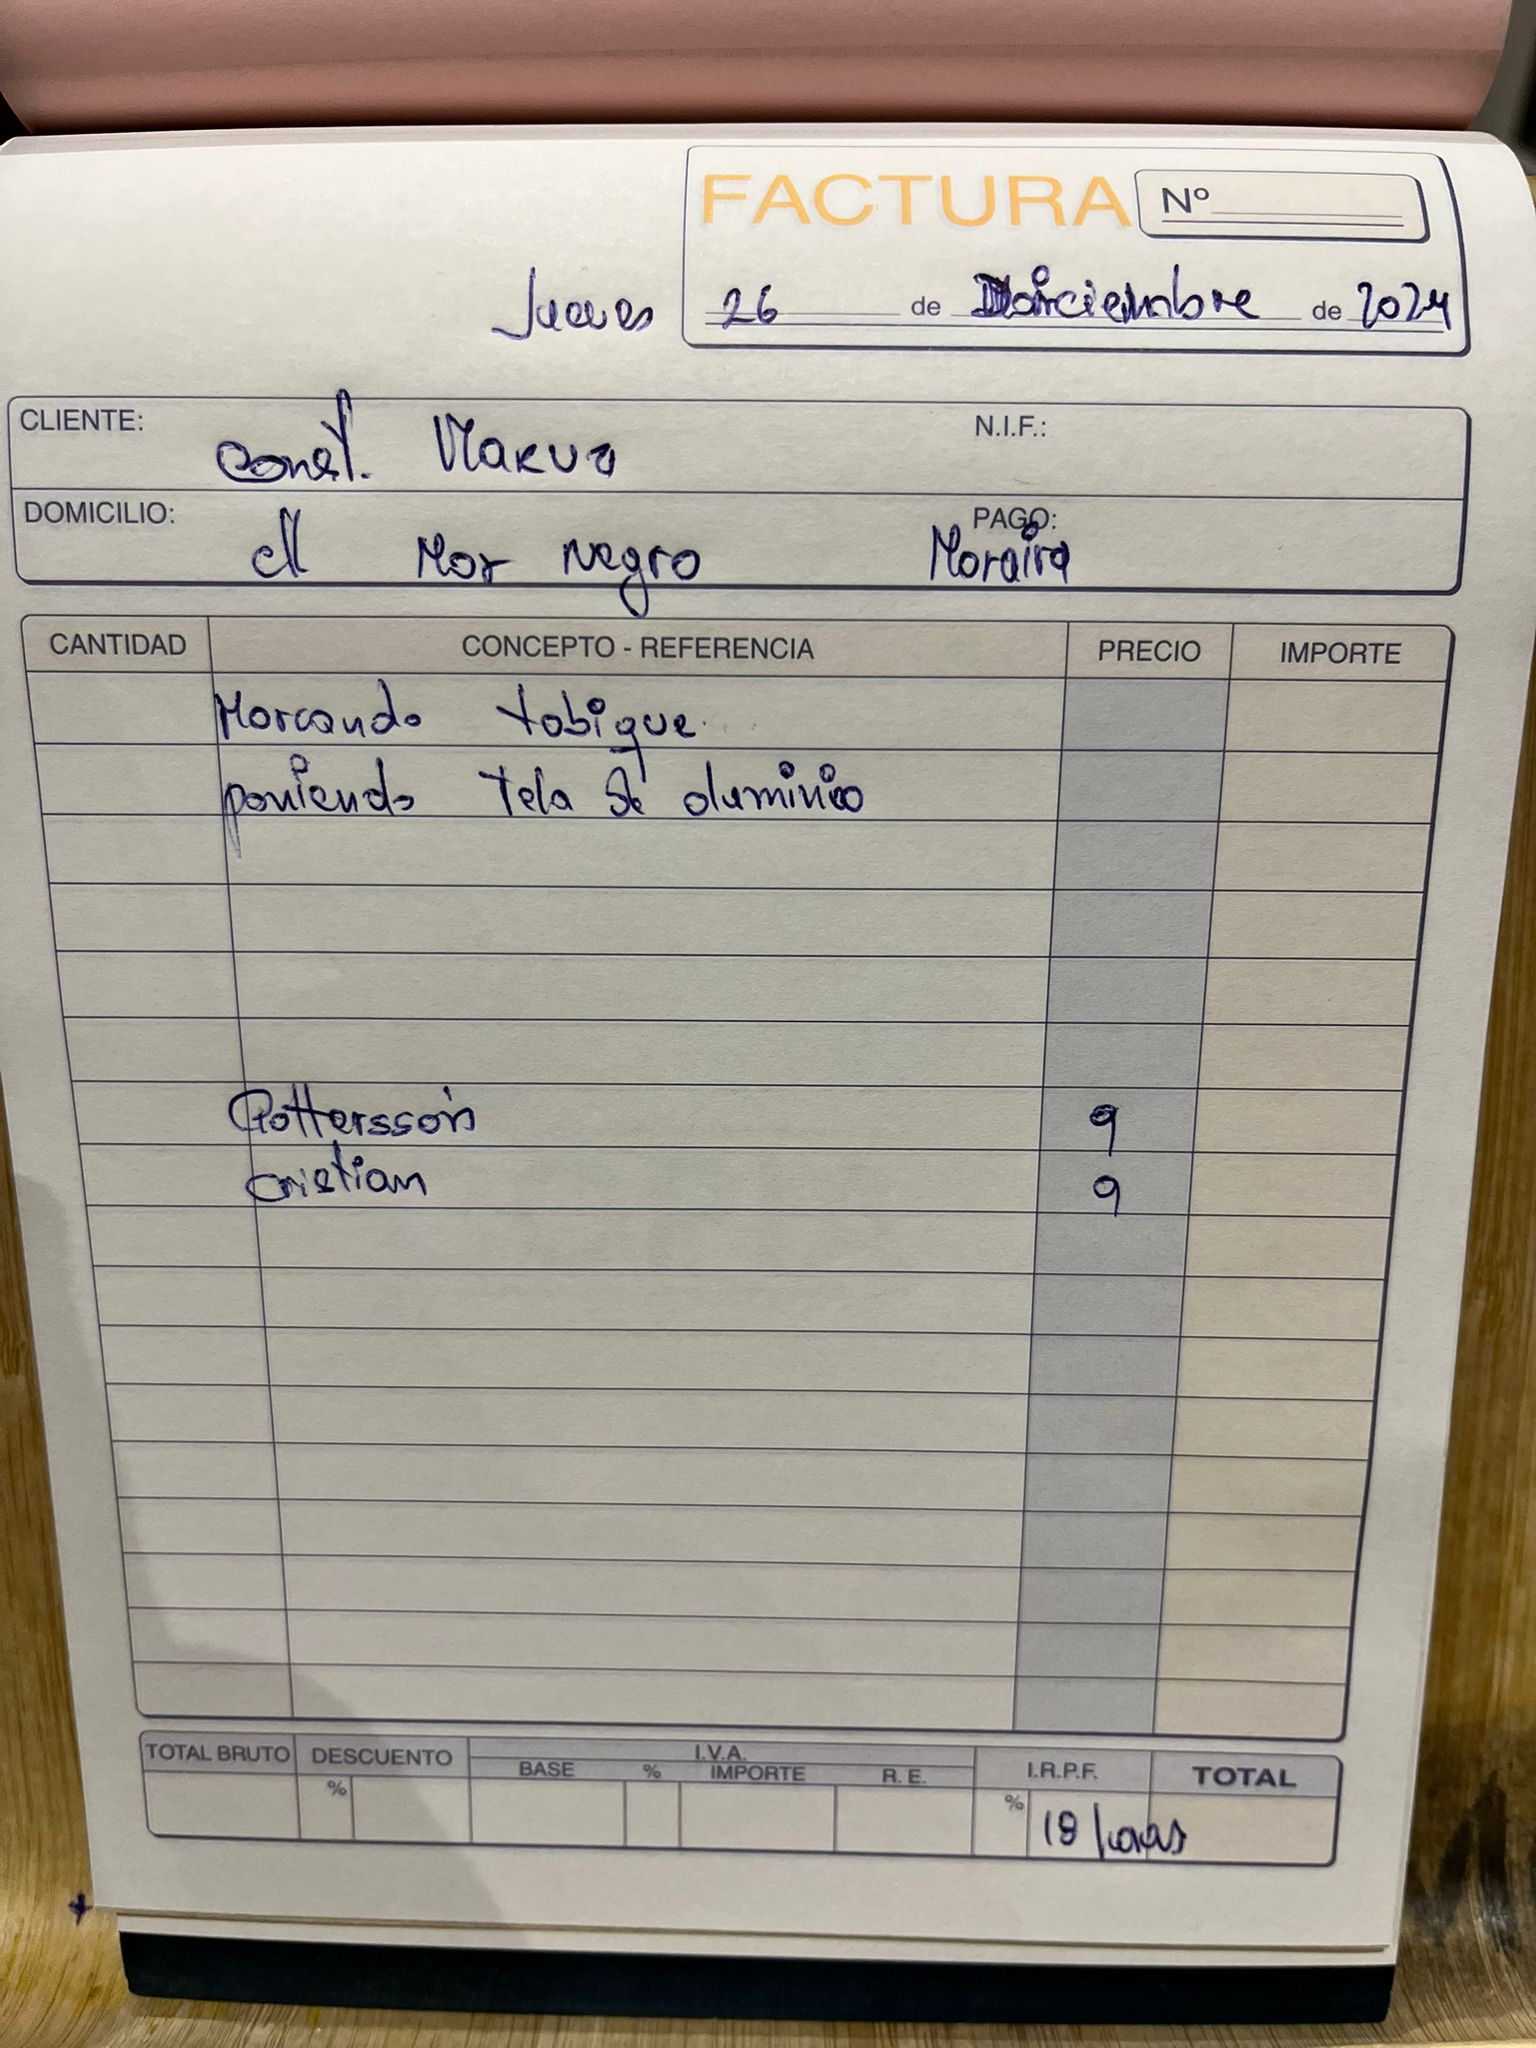 FACTURA Nº
Jueves 26 de Diciembre de 2024
CLIENTE: const. Markva N.I.F.:
DOMICILIO: c/ Mar Negro PAGO: Moraira
CANTIDAD CONCEPTO - REFERENCIA PRECIO IMPORTE
Marcando tabique.
poniendo tela de aluminio
Gottersson 9
cristian 9
TOTAL BRUTO DESCUENTO I.V.A. I.R.P.F. TOTAL
BASE % IMPORTE R. E.
% % 18 horas